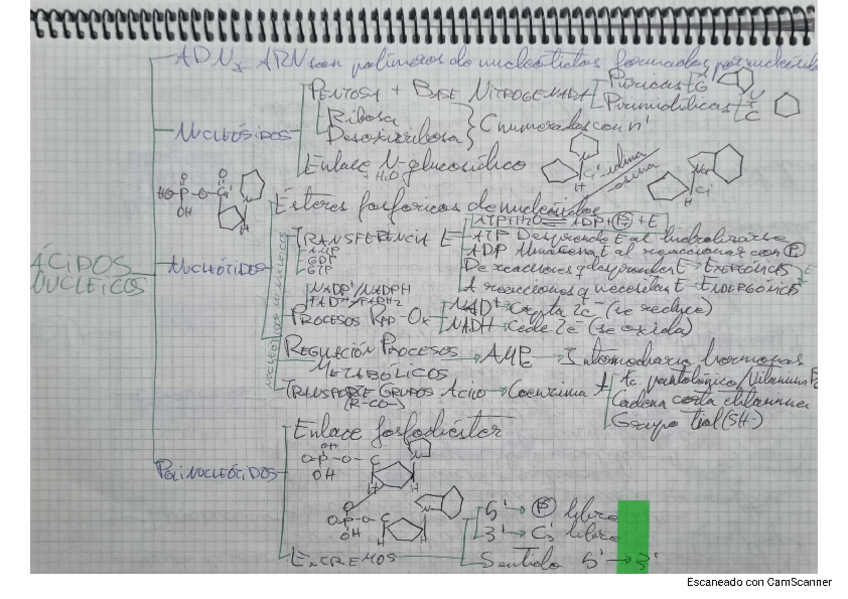 ADN y ARN son polímeros de nucleótidos formados por
ÁCIDOS NUCLEICOS
NUCLEÓSIDOS
PENTOSA + BASE NITROGENADA
Púricas A G
Pirimidíticas U T C
Ribosa
Desoxirribosa
Cnumeradas con n'
Enlace N-glucosídico
+ H₂O
-idina
-osina
NUCLEÓTIDOS
HO-P-O-C
O
OH
Ésteres fosfóricos de nucleósidos
TRANSFERENCIA E
AMP
GDP
GTP
ATP+H₂O ADP+P+E
ATP Desprende E al hidrolizarse
ADP Almacena E al reaccionar con P
De reacciones q desprenden E → EXERGÓNICAS
A reacciones q necesitan E → ENDERGÓNICAS
NADP⁺/NADPH
FAD⁺/FADH₂
PROCESOS RED-OX
NAD⁺ → Capta 2e⁻ (se reduce)
NADH → Cede 2e⁻ (se oxida)
REGULACIÓN PROCESOS METABÓLICOS → AMP → Intermediario hormonas
TRANSPORTE GRUPOS Acilo → Coenzima A
(R-CO-)
Ac. pantoténico/Vitamina B
Cadena corta etilamina
Grupo tiol (SH-)
POLINUCLEÓTIDOS
Enlace fosfodiéster
O-P-O-C
OH
H
O
O-P-O-C
OH
H
EXTREMOS
5' → P libre
3' → C3' libre
Sentido 5' → 3'
Escaneado con CamScanner